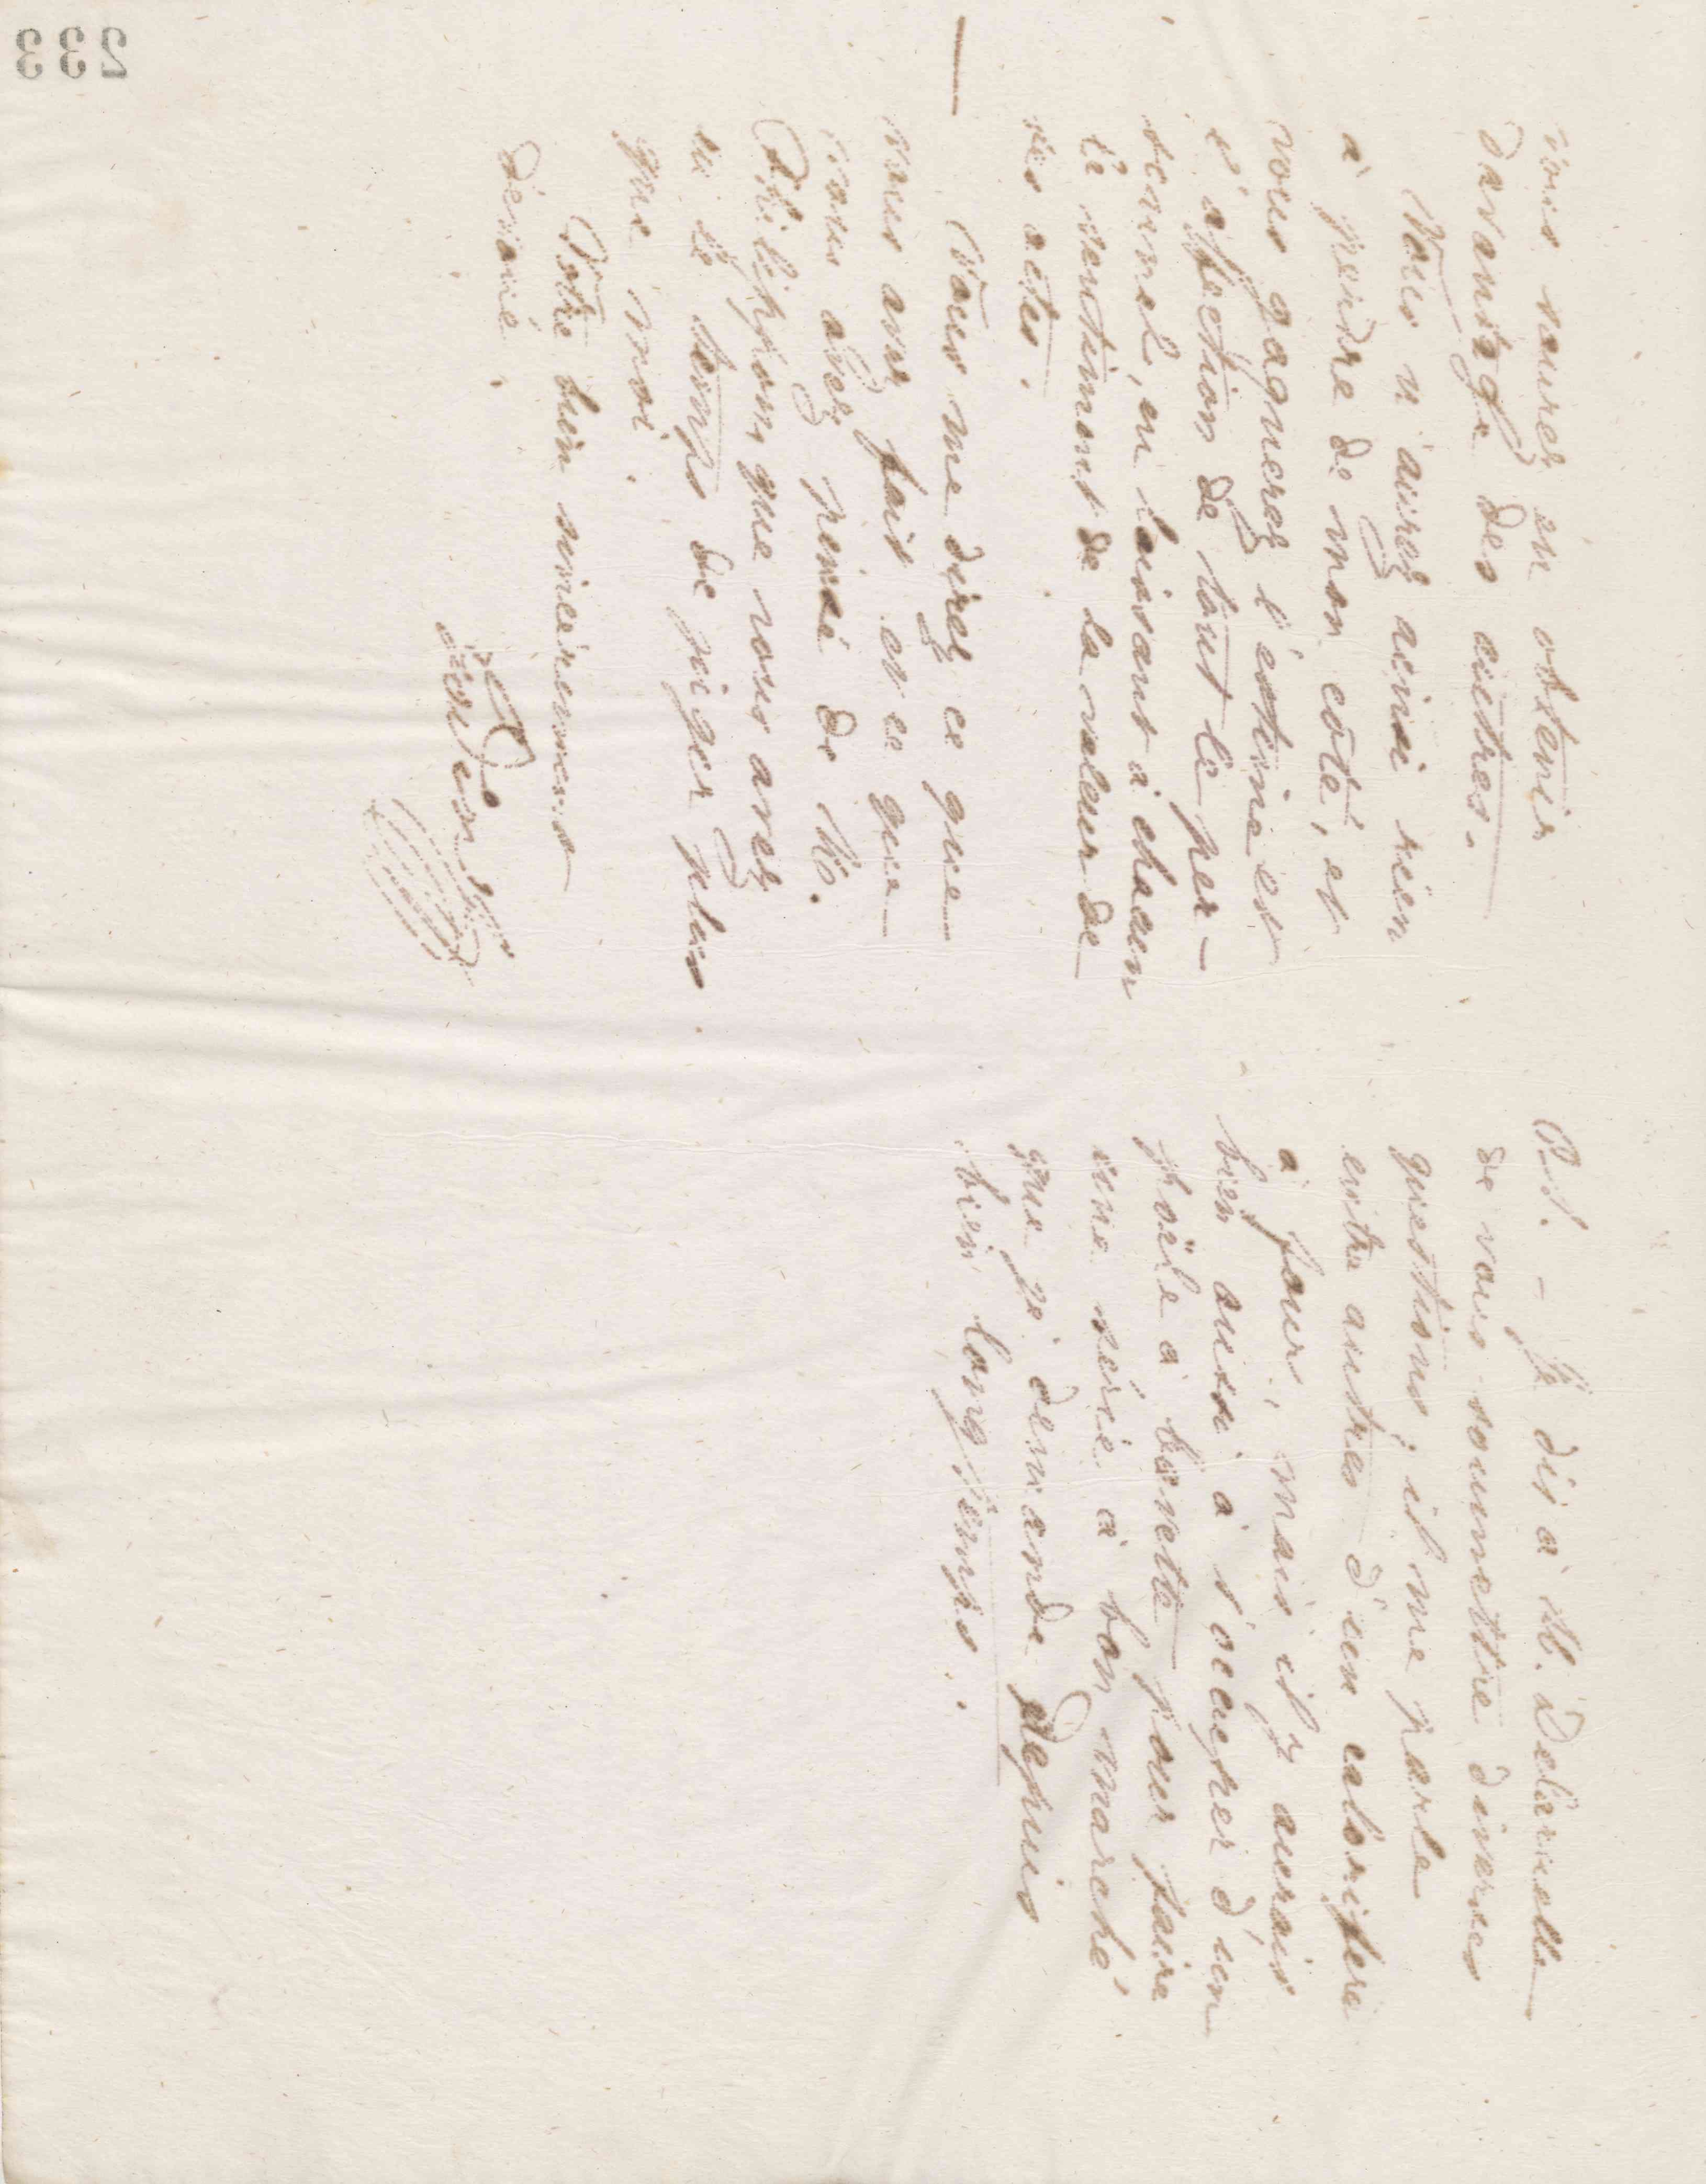 vous saurez en obtenir
davantage des autres.
Vous n'aurez ainsi rien
à perdre de mon côté, et
vous gagnerez l'estime et
l'affection de tout le per-
sonnel, en laissant à chacun
le sentiment de la valeur de
ses actes.
Vous me direz ce que
vous avez fait et ce que
vous avez pensé de M.
Philippon, que vous avez
eu le temps de juger plus
que moi.
Votre bien sincèrement
dévoué.
Godin
P.S. – Je dis à M. Delaruelle
de vous soumettre diverses
questions ; il me parle
entre autres d'un calorifère
à four, mais il y aurait
bien aussi à s'occuper d'un
poële à bonette pour faire
une série à bon marché
que je demande depuis
bien longtemps.
233